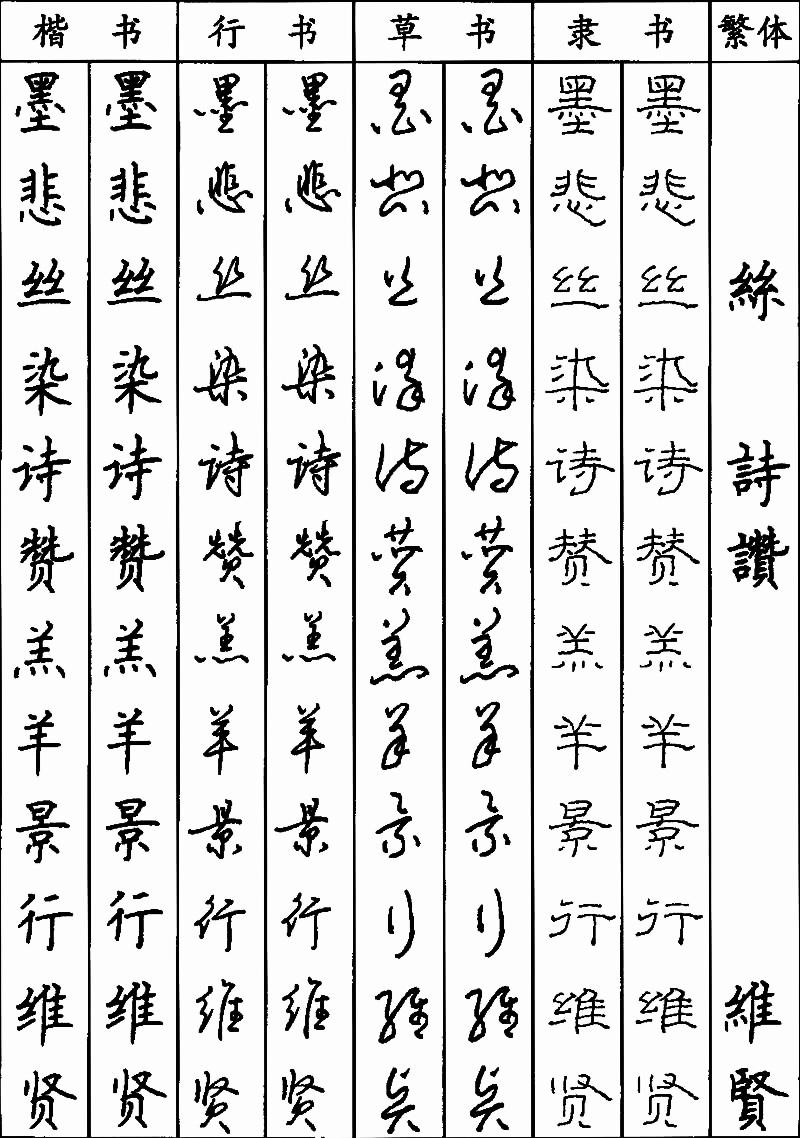 楷书 行书 草书 隶书 繁体
墨 墨 墨 墨 墨 墨 墨 墨
悲 悲 悲 悲 悲 悲 悲 悲
丝 丝 丝 丝 丝 丝 丝 丝 絲
染 染 染 染 染 染 染 染
诗 诗 诗 诗 诗 诗 诗 诗 詩
赞 赞 赞 赞 赞 赞 赞 赞 讚
羔 羔 羔 羔 羔 羔 羔 羔
羊 羊 羊 羊 羊 羊 羊 羊
景 景 景 景 景 景 景 景
行 行 行 行 行 行 行 行
维 维 维 维 维 维 维 维 維
贤 贤 贤 贤 贤 贤 贤 贤 賢